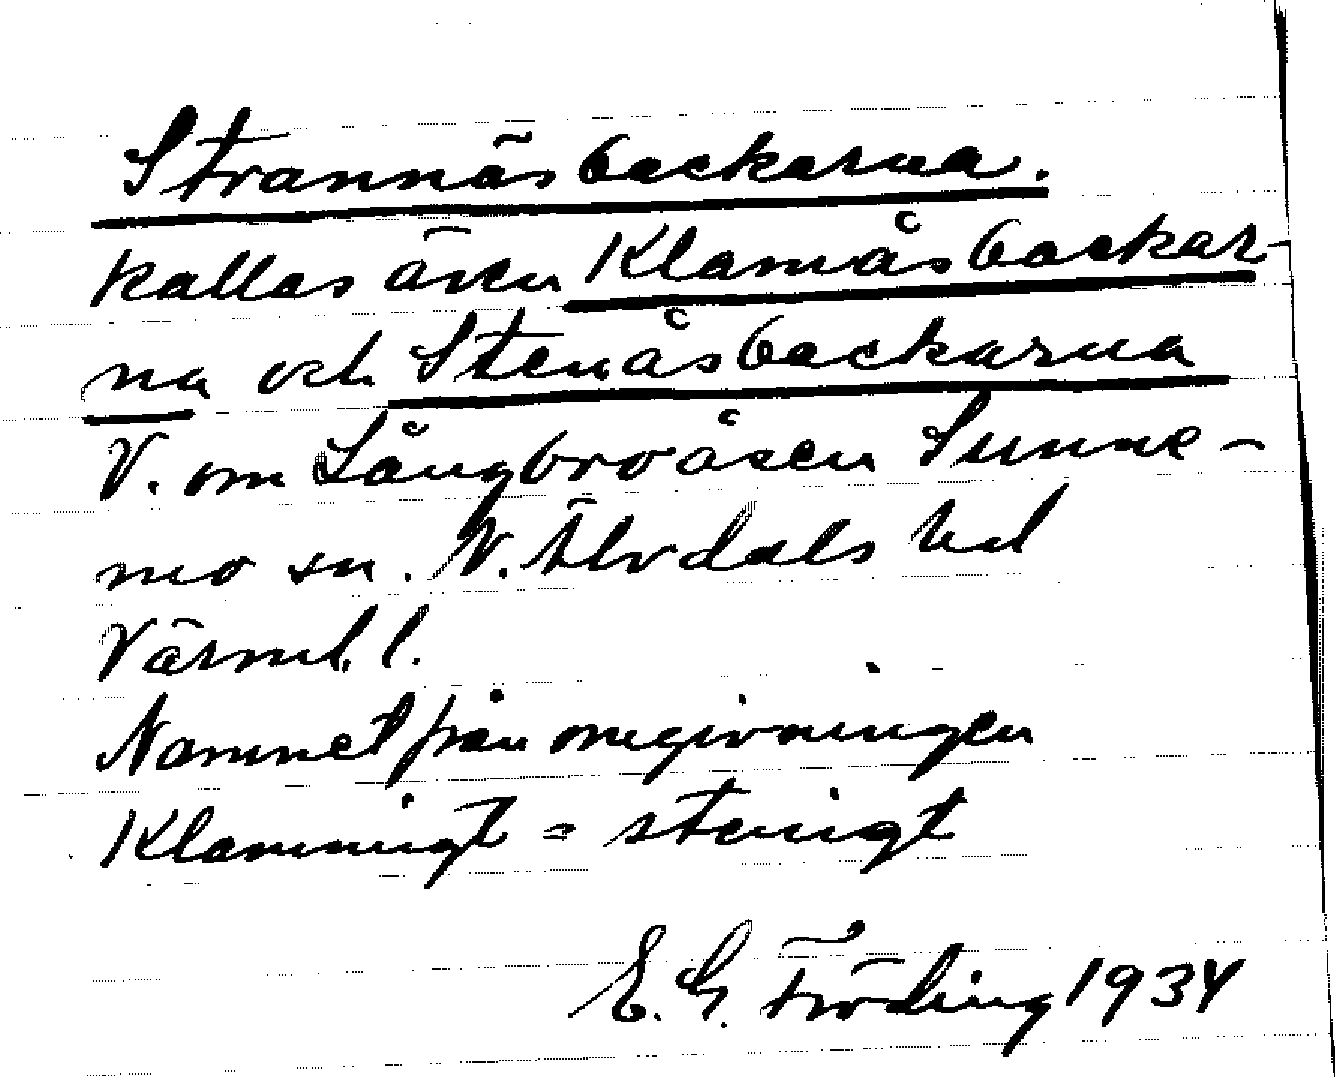 Strannäsbackarna.
kallas även Klamåsbackar-
na och Stenåsbackarna
V. om Långbroåsen Sunne-
mo sn. N. Älvdals hd
Värml. l.
Namnet från omgivningen
Klammigt = stenigt
E. G. Fröding 1934